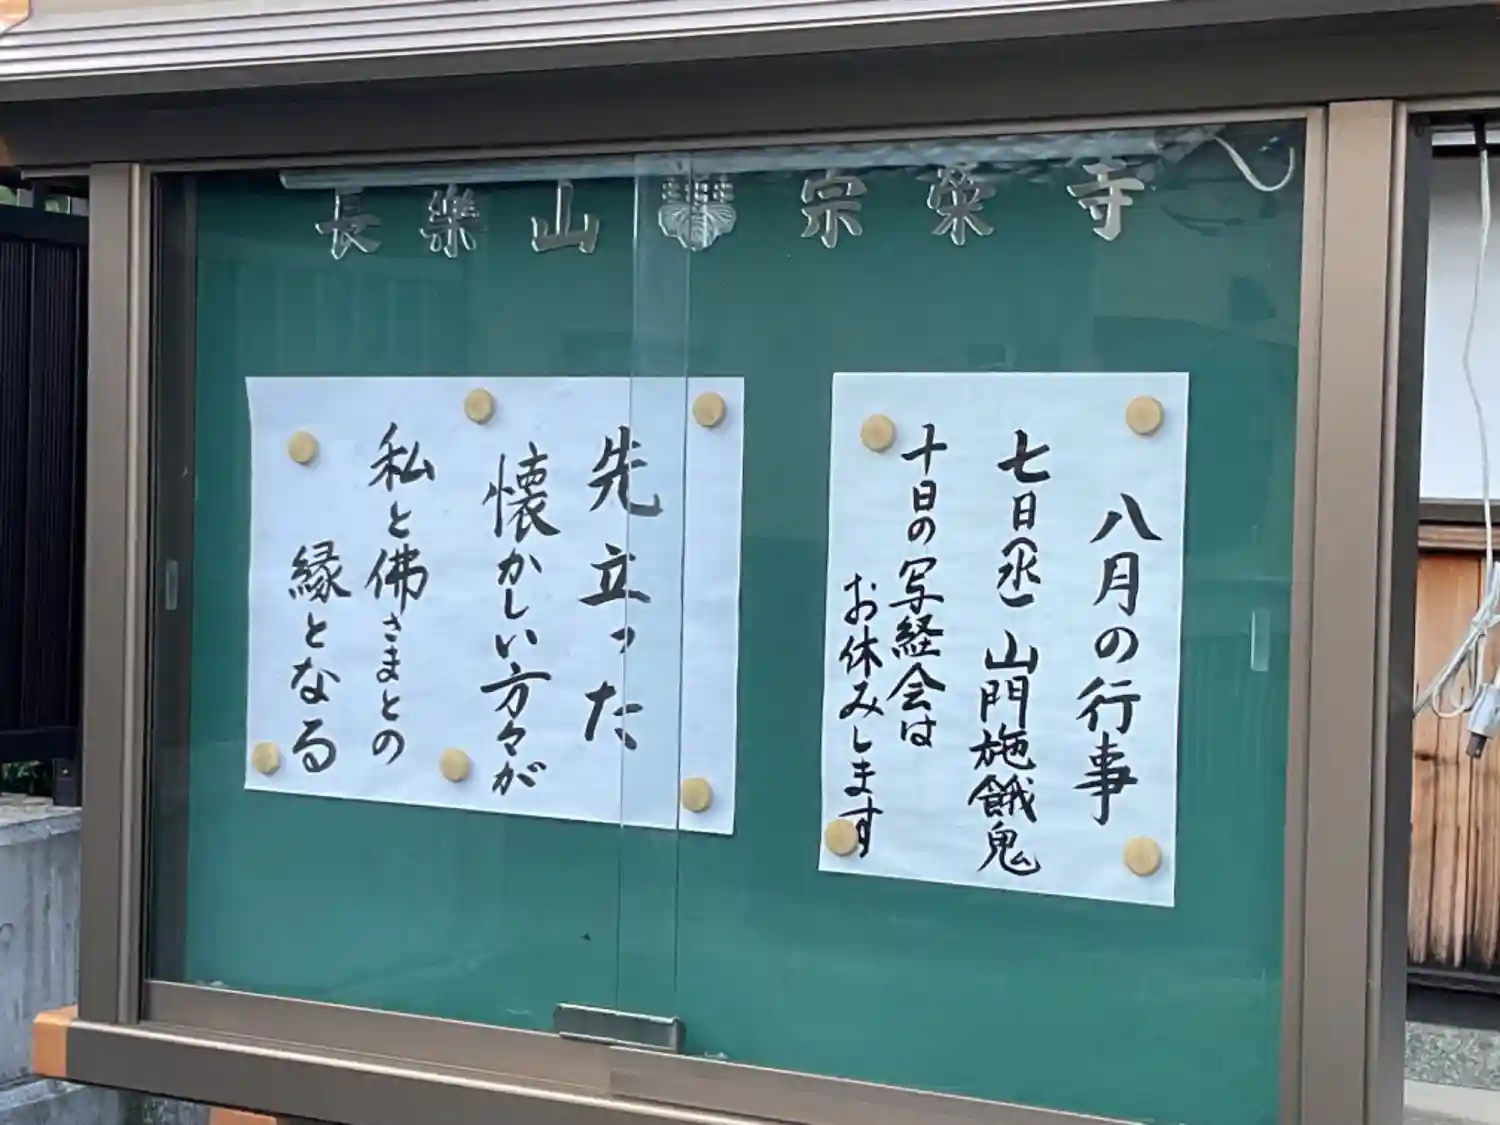 長樂山 宗栄寺
八月の行事
七日(水) 山門施餓鬼
十日の写経会は
お休みします
先立った
懐かしい方々が
私と佛さまとの
縁となる